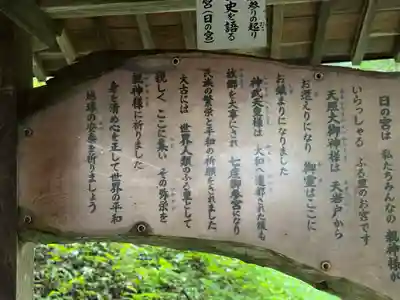 祭りの起り
史を語る
宮(日の宮)
日の宮は 私たちみんなの 親神様が
いらっしゃる ふる里のお宮です
天照大御神様は 天岩戸から
お遷えりになり 御霊はここに
お鎮まりになりました
神武天皇様は 大和へ遷都された後も
故郷を大事にされ 七度御参宮になり
民族の繁栄と平和の祈願をされました
太古には 世界人類のふる里として
親しく ここに集い その弥栄を
親神様に祈りました
身を清め心を正して世界の平和
地球の安泰を祈りましょう